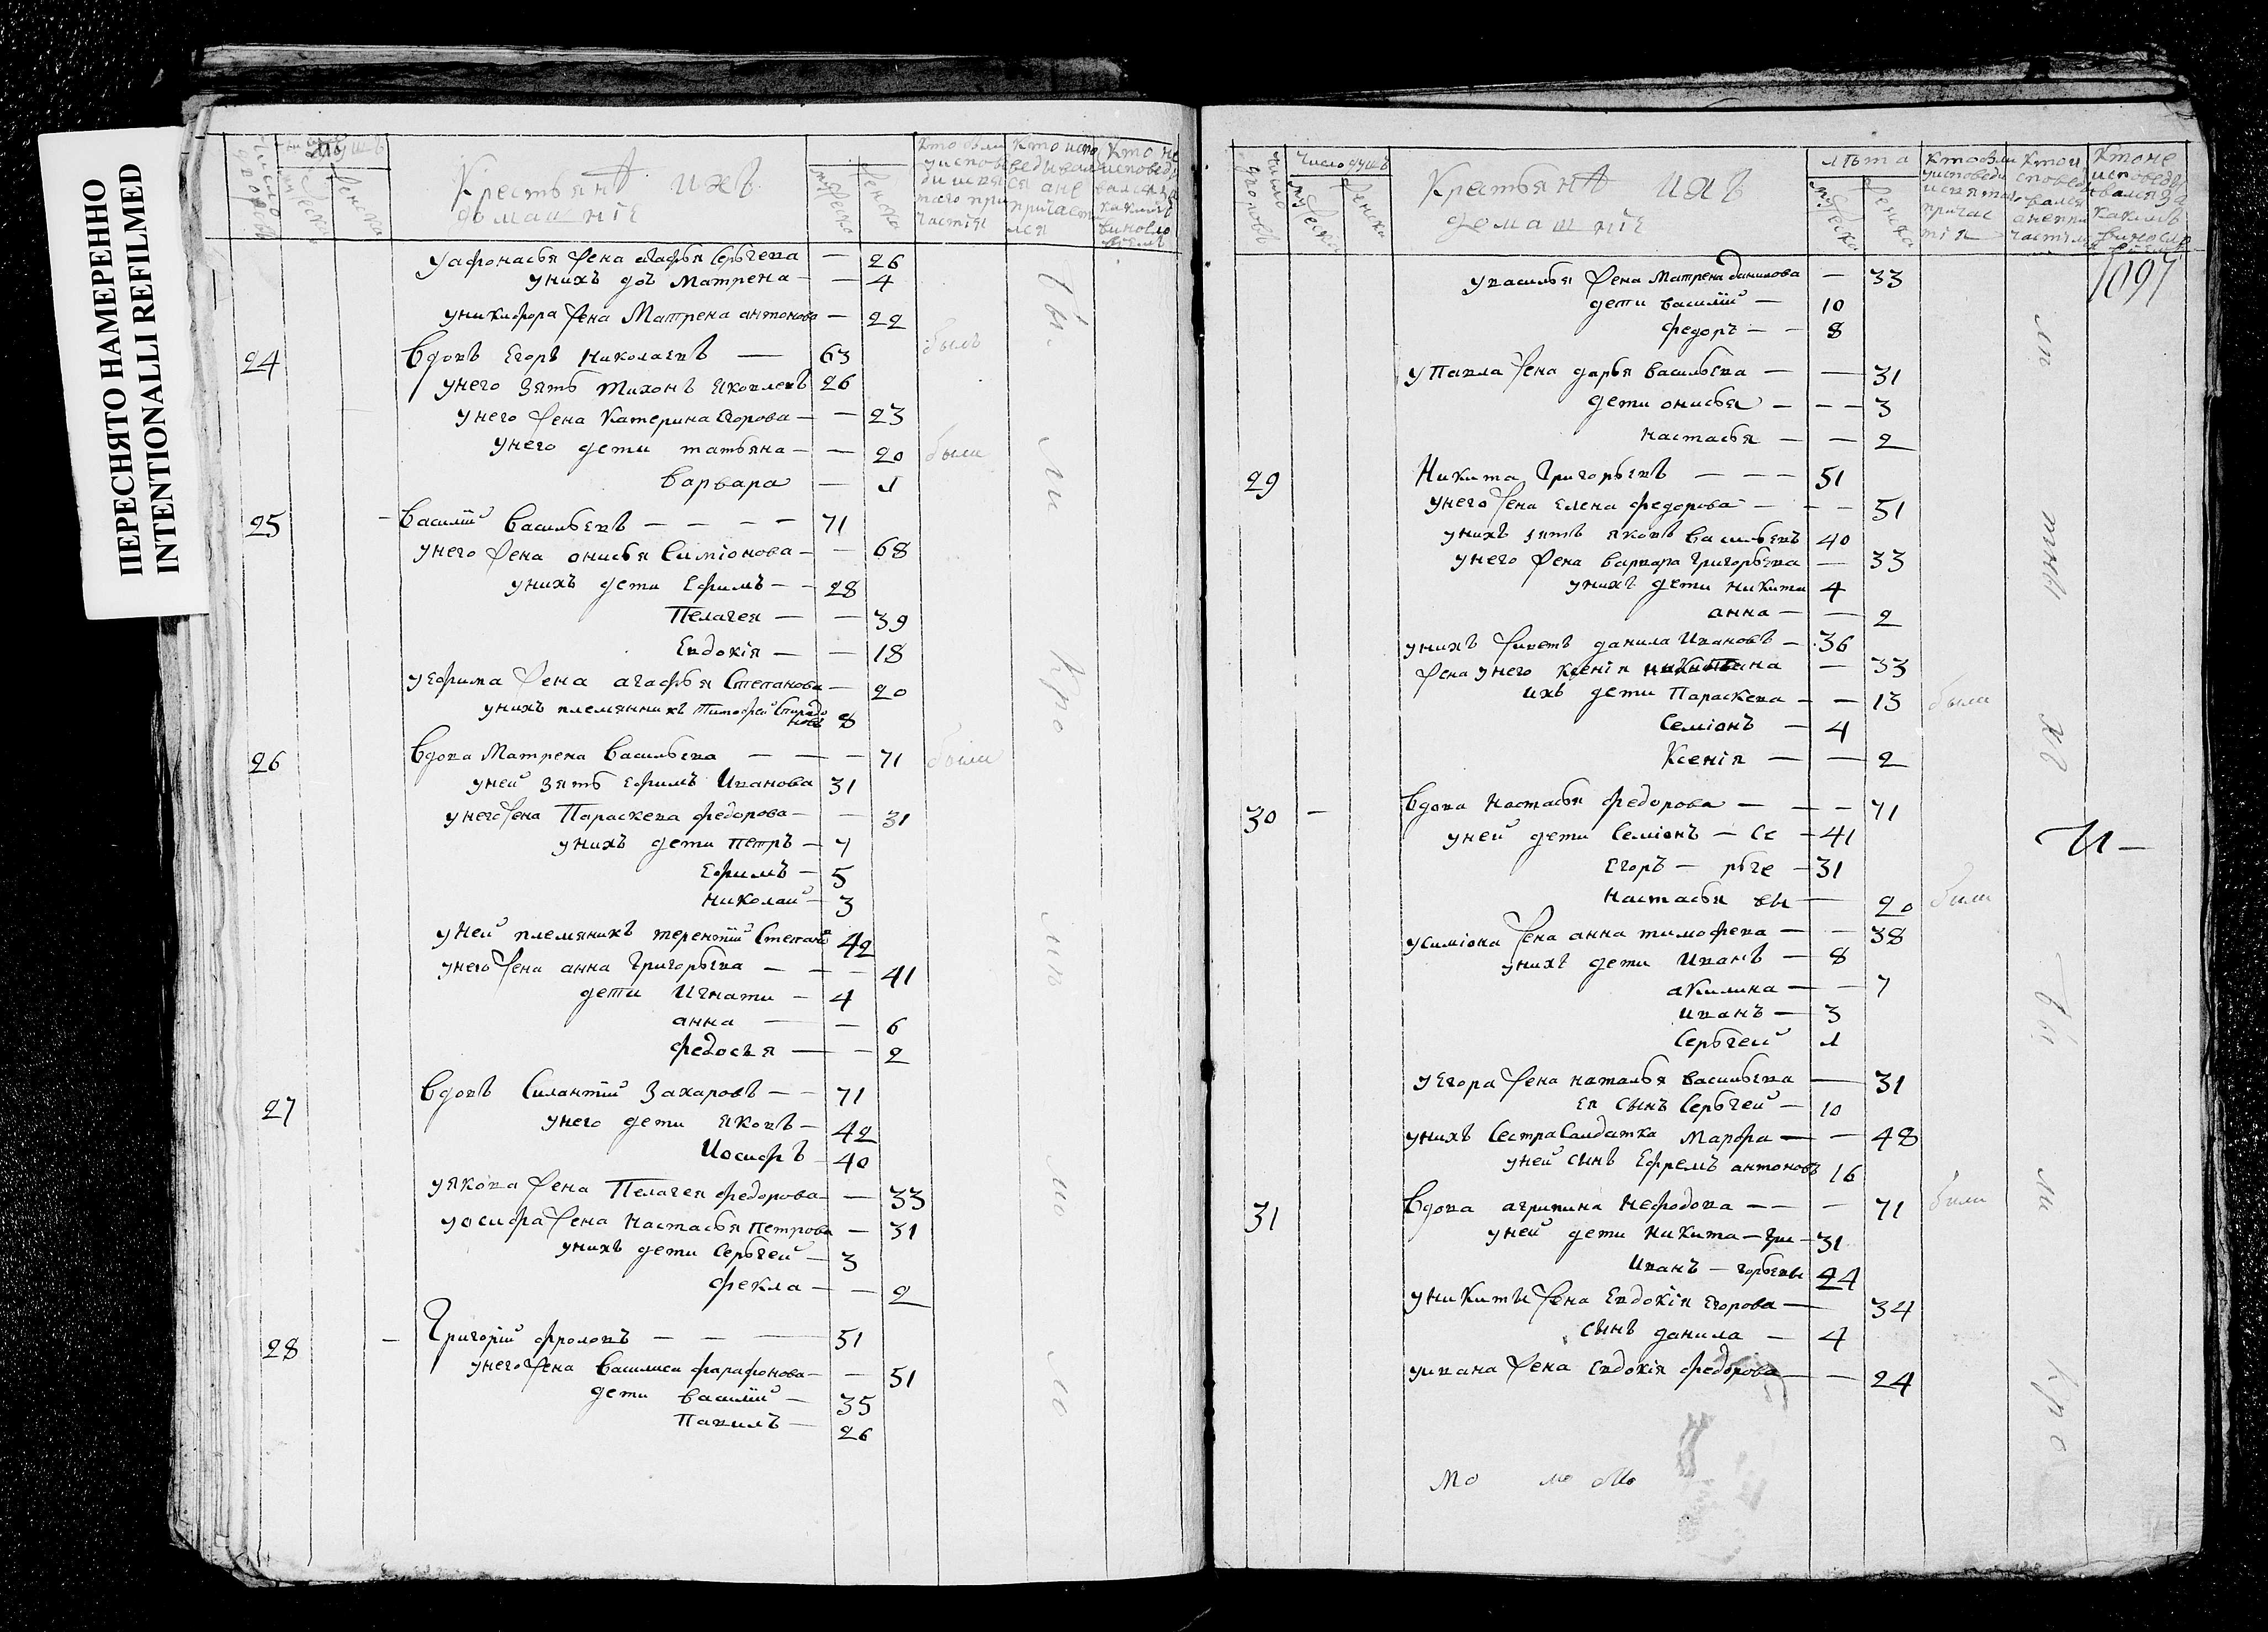 ПЕРЕСНЯТО НАМЕРЕННО
INTENTIONALLI REFILMED
число дворовъ
мужеска
женска
Крестьянѣ ихъ
домашніе
мужеска
женска
кто были
у исповѣ
ди и свя
таго при
частія
кто испо
ведывал
ся а не
причаст
лся
кто не
исповед
вался за
какимъ
виносло
віемъ
у афонасья жена агафья Сергѣева — 26
у нихъ доч Матрена — — 4
у никифора жена Матрена антонова — 22
24 вдовъ Егоръ Николаевъ — 63 былъ
у него зять тихонъ Яковлевъ 26
у него жена Катерина Егорова — — 23
у него дети татьяна — — 20 были
варвара — 1
25 — василій васильевъ — — — — 71
у него жена онисья Симіонова — — 68
у нихъ дети Ефимъ — — 28
Пелагея — — 39
Евдокія — — 18
у ефима жена агафья Степанова — 20
у нихъ племянникъ Тимофей Спиридо
новъ 8
26 вдова Матрена васильева — — — 71 были
у ней зять ефимъ Иванова 31
у него жена Параскева федорова — — 31
у нихъ дети петръ — 7
Ефимъ — 5
николай — 3
у ней племяникъ терентій Степанв 42
у него жена анна Григорьева — — — 41
дети Игнати — 4
анна — — 6
федосья — — 2
27 вдовъ Силантій Захаровъ — — 71
у него дети яковъ — 42
Иосифъ 40
у якова жена Пелагея федорова — — 33
у осифа жена настасья петрова — 31
у нихъ дети Сергѣей — 3
фекла — — 2
28 — Григорій фроловъ — — — 51
у него жена василиса фарафонова — — 51
дети василій — 35
Павилъ — 26
бы
ли
кро
мп
мо
со
число дворовъ
число душъ
мужеска
женска
Крестьянѣ ихъ
домашніе
лѣта
мужеска
женска
кто были
у исповеди
и святы
причас
тія
кто и
споведы
вался
а не при
частился
кто не
исповеды
вался за
какимъ
виносло
1097
у василья жена Матрена данилова — 33
дети василій — 10
федоръ — — 8
у Павла жена дарья васильева — — 31
дети онисья — — — 3
настасья — — 2
29 Никита Григорьевъ — — — 51
у него жена елена федорова — — — 51
у нихъ зять яковъ васильевъ 40
у него жена варвара Григорьева — 33
у нихъ дети никита 4
анна — — 2
у нихъ живетъ данила Ивановъ — 36
жена у него ксенія никитина — 33
ихъ дети Параскева — — 13 были
Семіонъ — 4
Ксенія — — 2
30 — вдова настасья федорова — — — 71
у ней дети Семіонъ — Се — 41
Егоръ — ргѣе — 31
настасья вы — 20 были
у симіона жена анна тимофева — — 38
у нихъ дети Иванъ — 8
акилина — — 7
иванъ — 3
Сергѣей 1
у Егора жена наталья васильева — 31
ея сынъ Сергѣей — 10
у нихъ Сестра Салдатка марфа — — 48
у ней сынъ ефремъ антоновъ 16
31 вдова агрипина Нефодова — — — 71 были
у ней дети никита — Гри — 31
иванъ — горьевы 24
у никиты жена Евдокія Егорова — 34
сынъ данила — 4
у ивана жена Евдокія федорова — — 24
мо мо мо
И —
бы
ли
кро